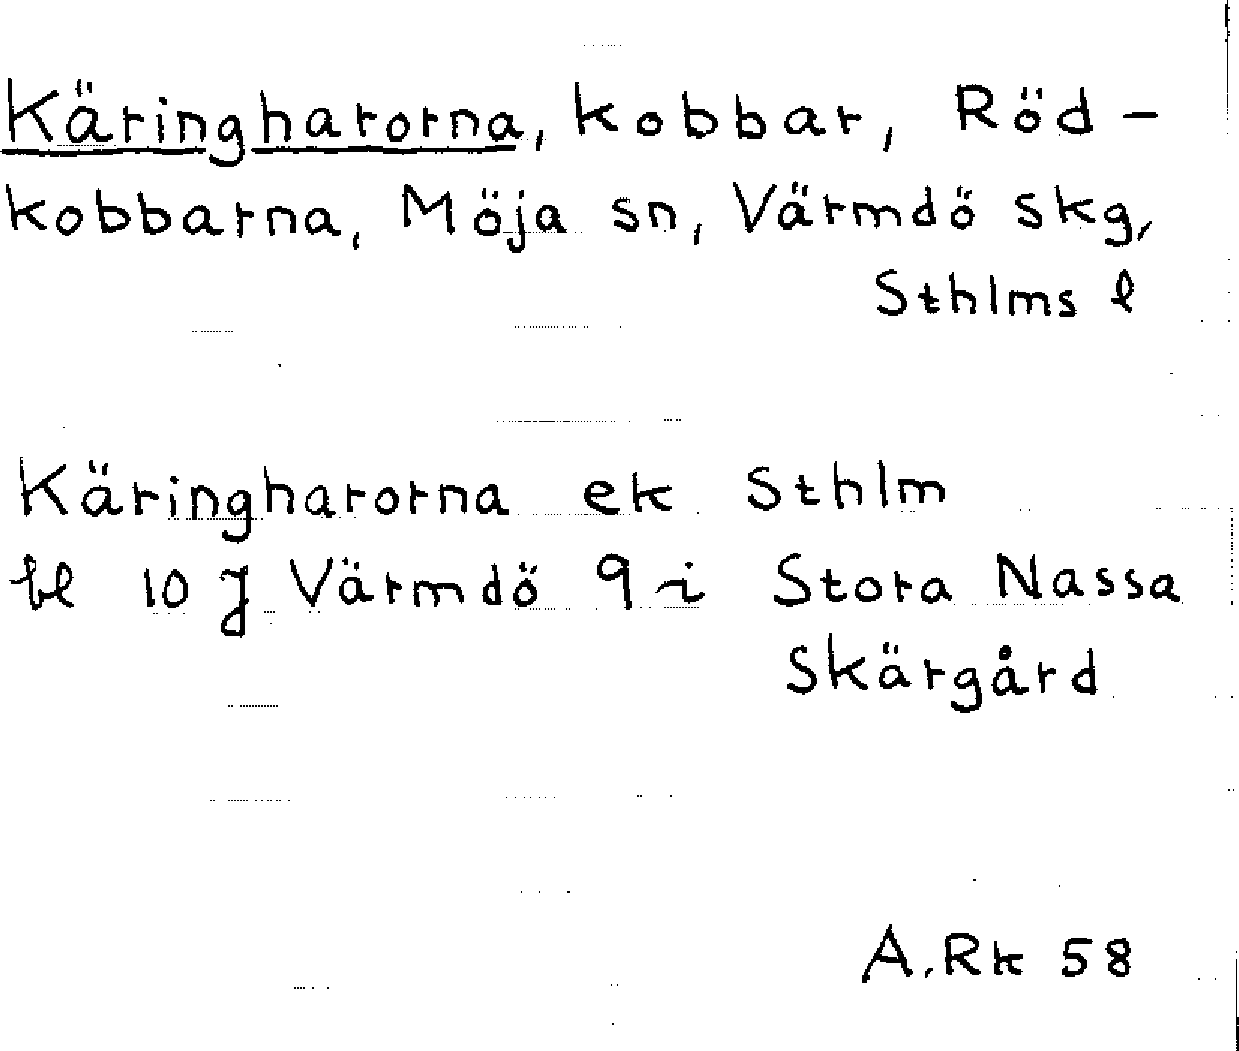 Käringharorna, kobbar, Röd-
kobbarna, Möja sn, Värmdö skg,
Sthlms l
Käringharorna ek Sthlm
bl 10 J Värmdö 9 i Stora Nassa
Skärgård
A.Rk 58